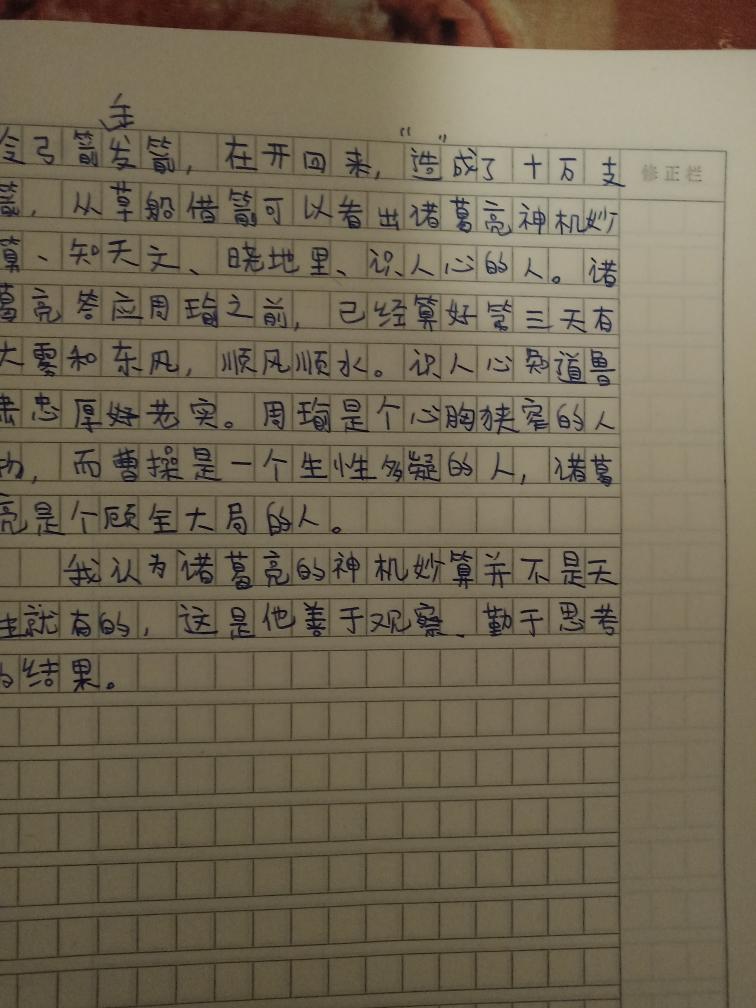 全
令弓箭发箭，在开回来，“造”成了十万支
修正栏
箭，从草船借箭可以看出诸葛亮神机妙
算、知天文、晓地里、识人心的人。诸
葛亮答应周瑜之前，已经算好第三天有
大雾和东风，顺风顺水。识人心知道鲁
肃忠厚好老实。周瑜是个心胸狭窄的人
物，而曹操是一个生性多疑的人，诸葛
亮是个顾全大局的人。
我认为诸葛亮的神机妙算并不是天
生就有的，这是他善于观察、勤于思考
的结果。